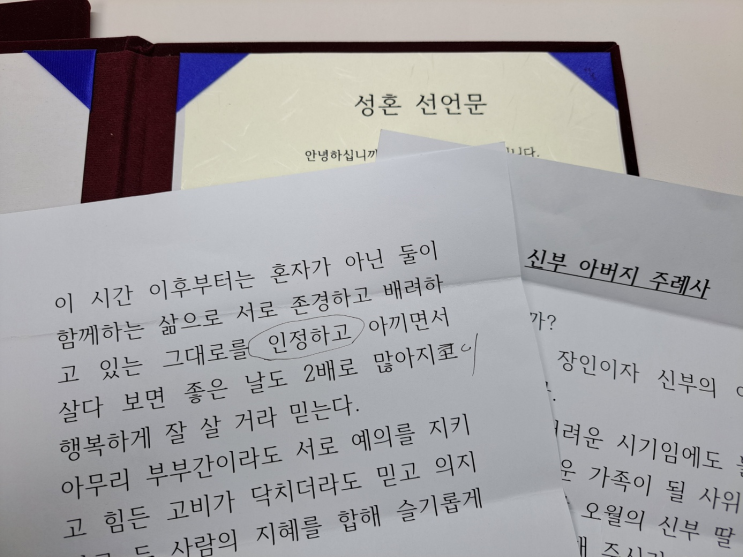 성혼 선언문
안녕하십니까
니다.
이 시간 이후부터는 혼자가 아닌 둘이
함께하는 삶으로 서로 존경하고 배려하
고 있는 그대로를 인정하고 아끼면서
살다 보면 좋은 날도 2배로 많아지고
행복하게 잘 살 거라 믿는다.
아무리 부부간이라도 서로 예의를 지키
고 힘든 고비가 닥치더라도 믿고 의지
두 사람의 지혜를 합해 슬기롭게
신부 아버지 주례사
까?
장인이자 신부의
려운 시기임에도
운 가족이 될 사위
오월의 신부 딸